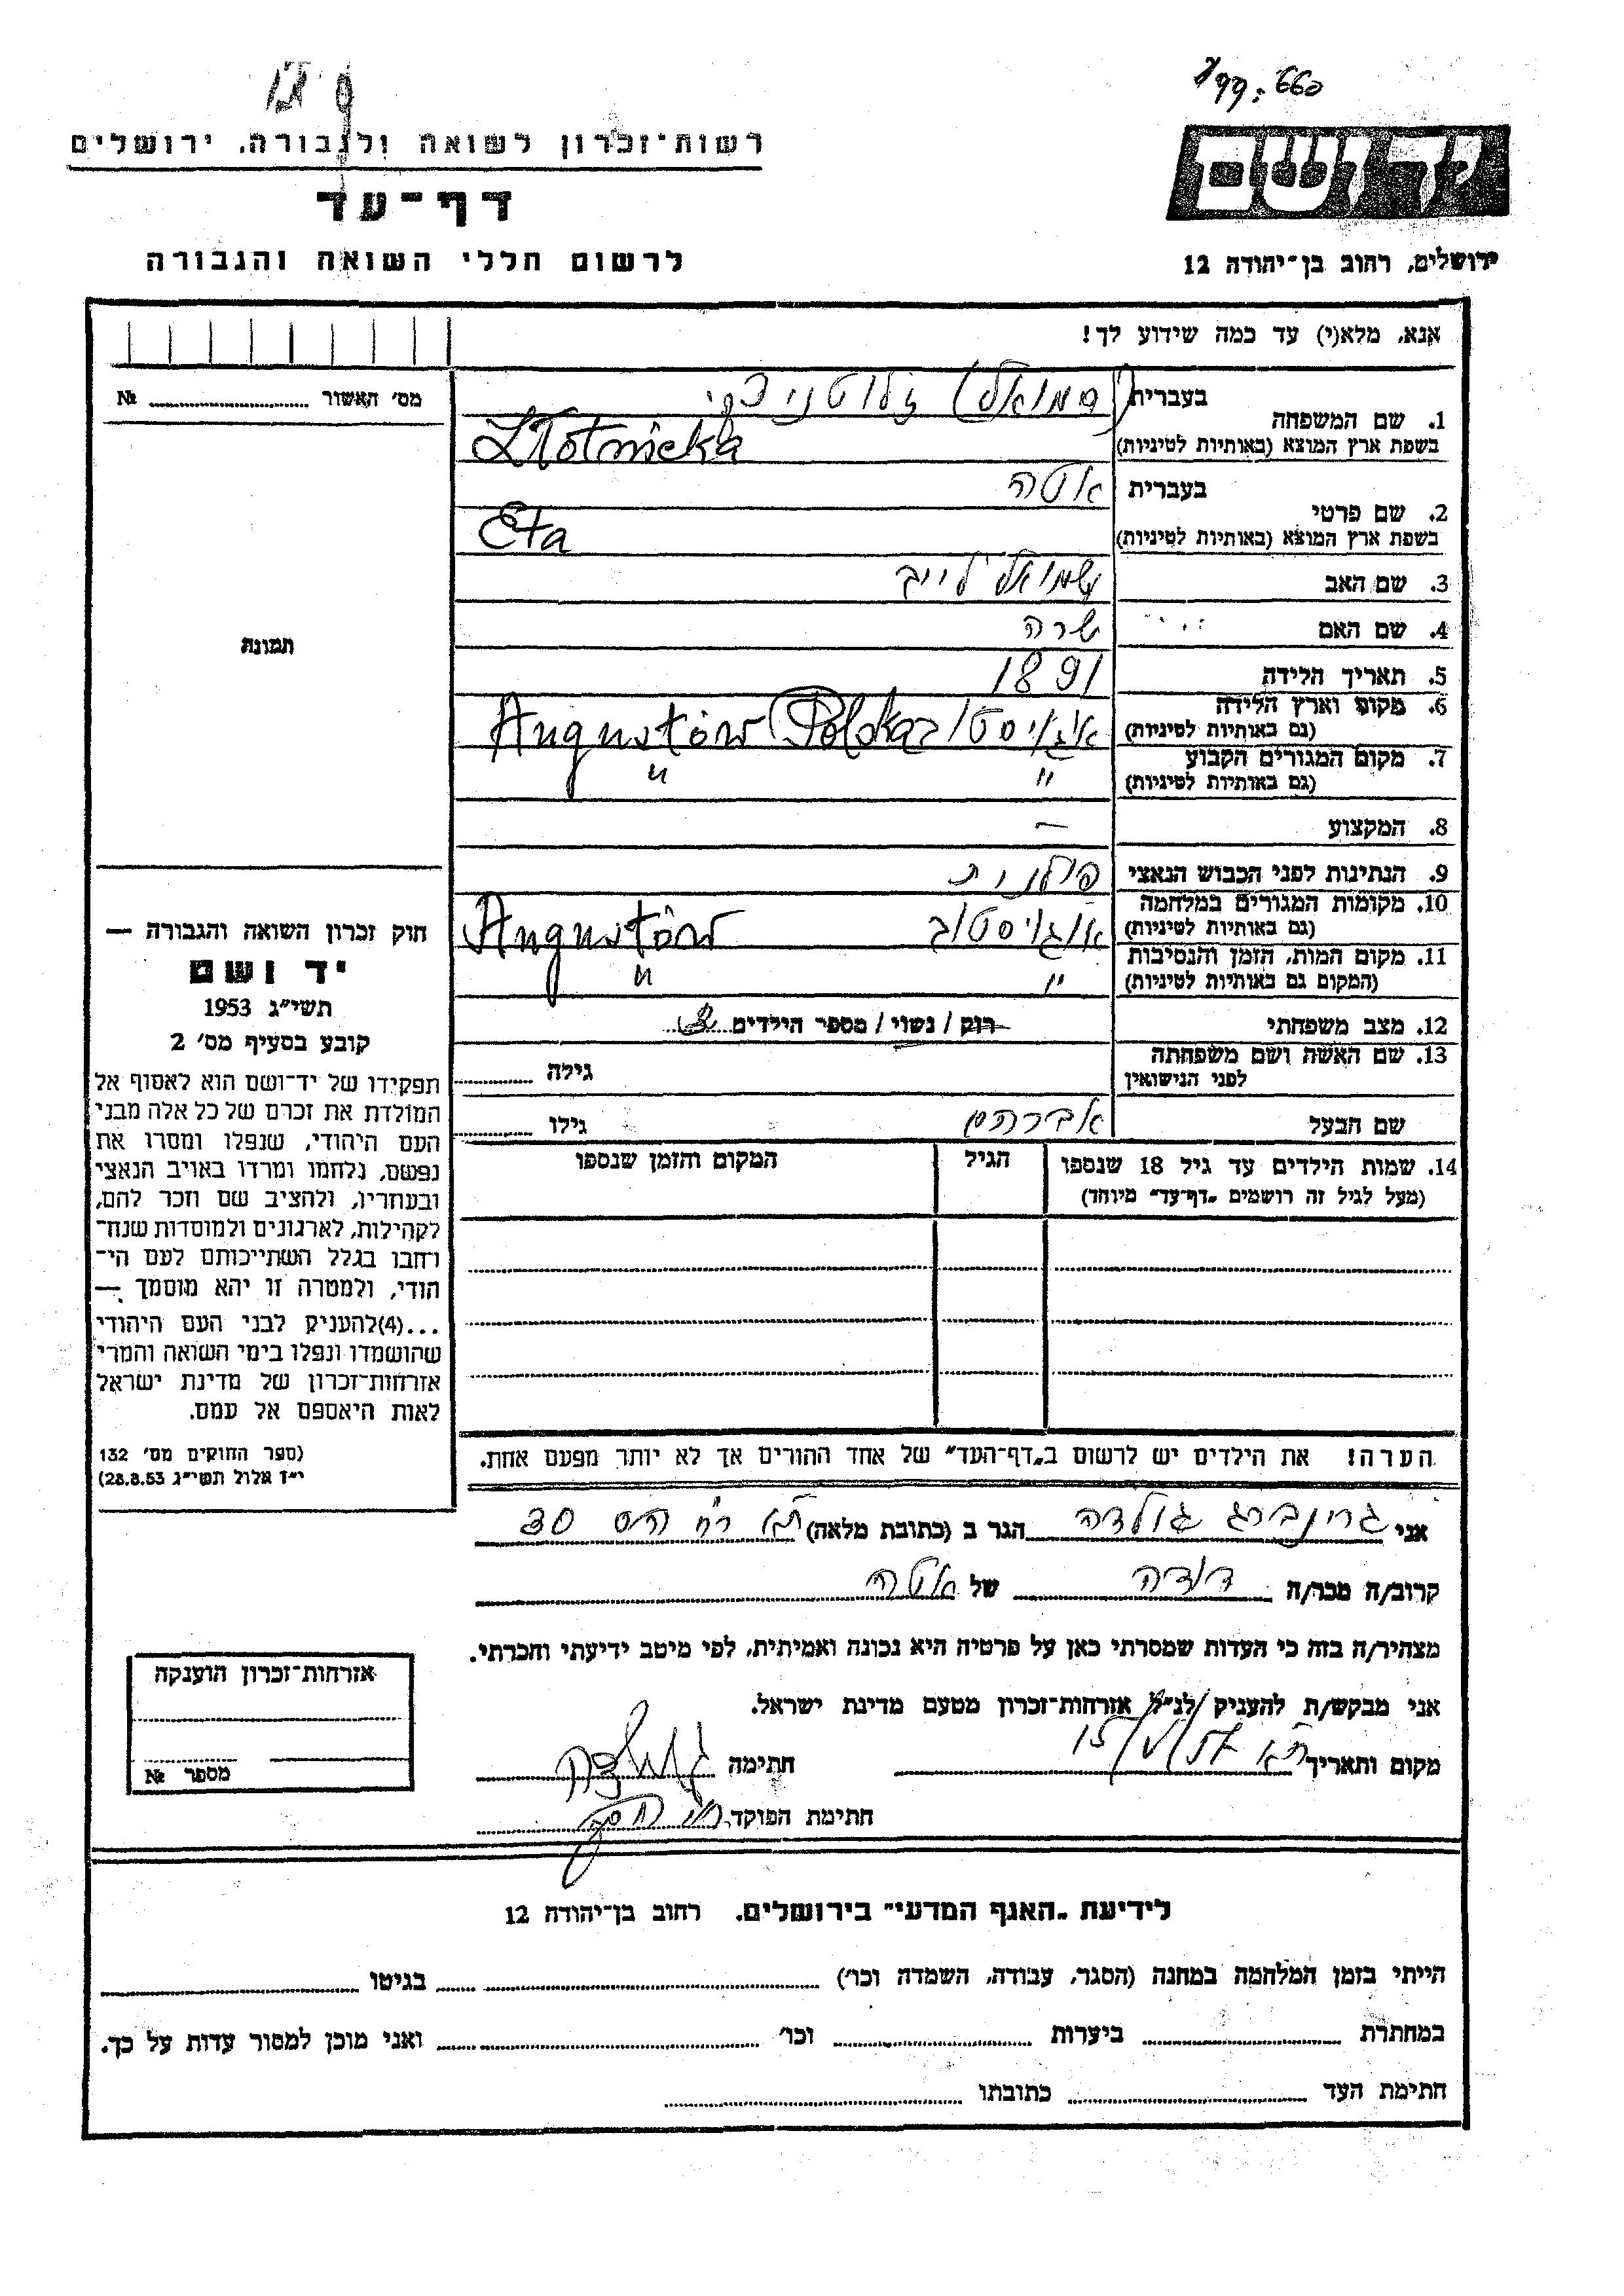 רשות־זכרון לשואה ולגבורה, ירושלים
דף־עד
לרשום חללי השואה והגבורה
יד ושם
ירושלים, רחוב בן־יהודה 12
אנא, מלא(י) עד כמה שידוע לך!
מס׳ האשור № 
תמונה
1. שם המשפחה
בעברית זלוטניצקי
בשפת ארץ המוצא (באותיות לטיניות) Złotnicka
2. שם פרטי
בעברית אטה
בשפת ארץ המוצא (באותיות לטיניות) Eta
3. שם האב שמואל לייב
4. שם האם שרה
5. תאריך הלידה 1891
6. מקום וארץ הלידה
(גם באותיות לטיניות) Augustów Polska
7. מקום המגורים הקבוע
(גם באותיות לטיניות) " "
8. המקצוע —
9. הנתינות לפני הכבוש הנאצי פולנית
10. מקומות המגורים במלחמה
(גם באותיות לטיניות) אוגויסטוב Augustów
11. מקום המות, הזמן והנסיבות
(המקום גם באותיות לטיניות) " "
12. מצב משפחתי רוק / נשוי / מספר הילדים
13. שם האשה ושם משפחתה
לפני הנישואין גילה
שם הבעל אברהם גילו
14. שמות הילדים עד גיל 18 שנספו
(מעל לגיל זה רושמים „דף־עד״ מיוחד)
הגיל
המקום והזמן שנספו
חוק זכרון השואה והגבורה —
יד ושם
תשי״ג 1953
קובע בסעיף מס׳ 2
תפקידו של יד־ושם הוא לאסוף אל
המולדת את זכרם של כל אלה מבני
העם היהודי, שנפלו ומסרו את
נפשם, נלחמו ומרדו באויב הנאצי
ובעוזריו, ולהציב שם וזכר להם,
לקהילות, לארגונים ולמוסדות שנח־
רחבו בגלל השתייכותם לעם הי־
הודי, ולמטרה זו יהא מוסמך —
...(4)להעניק לבני העם היהודי
שהושמדו ונפלו בימי השואה והמרי
אזרחות־זכרון של מדינת ישראל
לאות היאספם אל עמם.
(ספר החוקים מס׳ 132
י״ז אלול תשי״ג 28.8.53)
הערה! את הילדים יש לרשום ב„דף־העד״ של אחד ההורים אך לא יותר מפעם אחת.
אני גרינברג גולדה הגר ב (כתובת מלאה) ת״א רח׳ הס 30
קרוב/ה מכר/ה דודה של אטה
מצהיר/ה בזה כי העדות שמסרתי כאן על פרטיה היא נכונה ואמיתית, לפי מיטב ידיעתי והכרתי.
אני מבקש/ת להעניק לנ״ל אזרחות־זכרון מטעם מדינת ישראל.
מקום ותאריך ת״א חתימה
חתימת הפוקד
אזרחות־זכרון הוענקה
מספר №
לידיעת „האגף המדעי״ בירושלים, רחוב בן־יהודה 12
הייתי בזמן המלחמה במחנה (הסגר, עבודה, השמדה וכו׳) בגיטו
במחתרת ביערות וכו׳ ואני מוכן למסור עדות על כך.
חתימת העד כתובתו